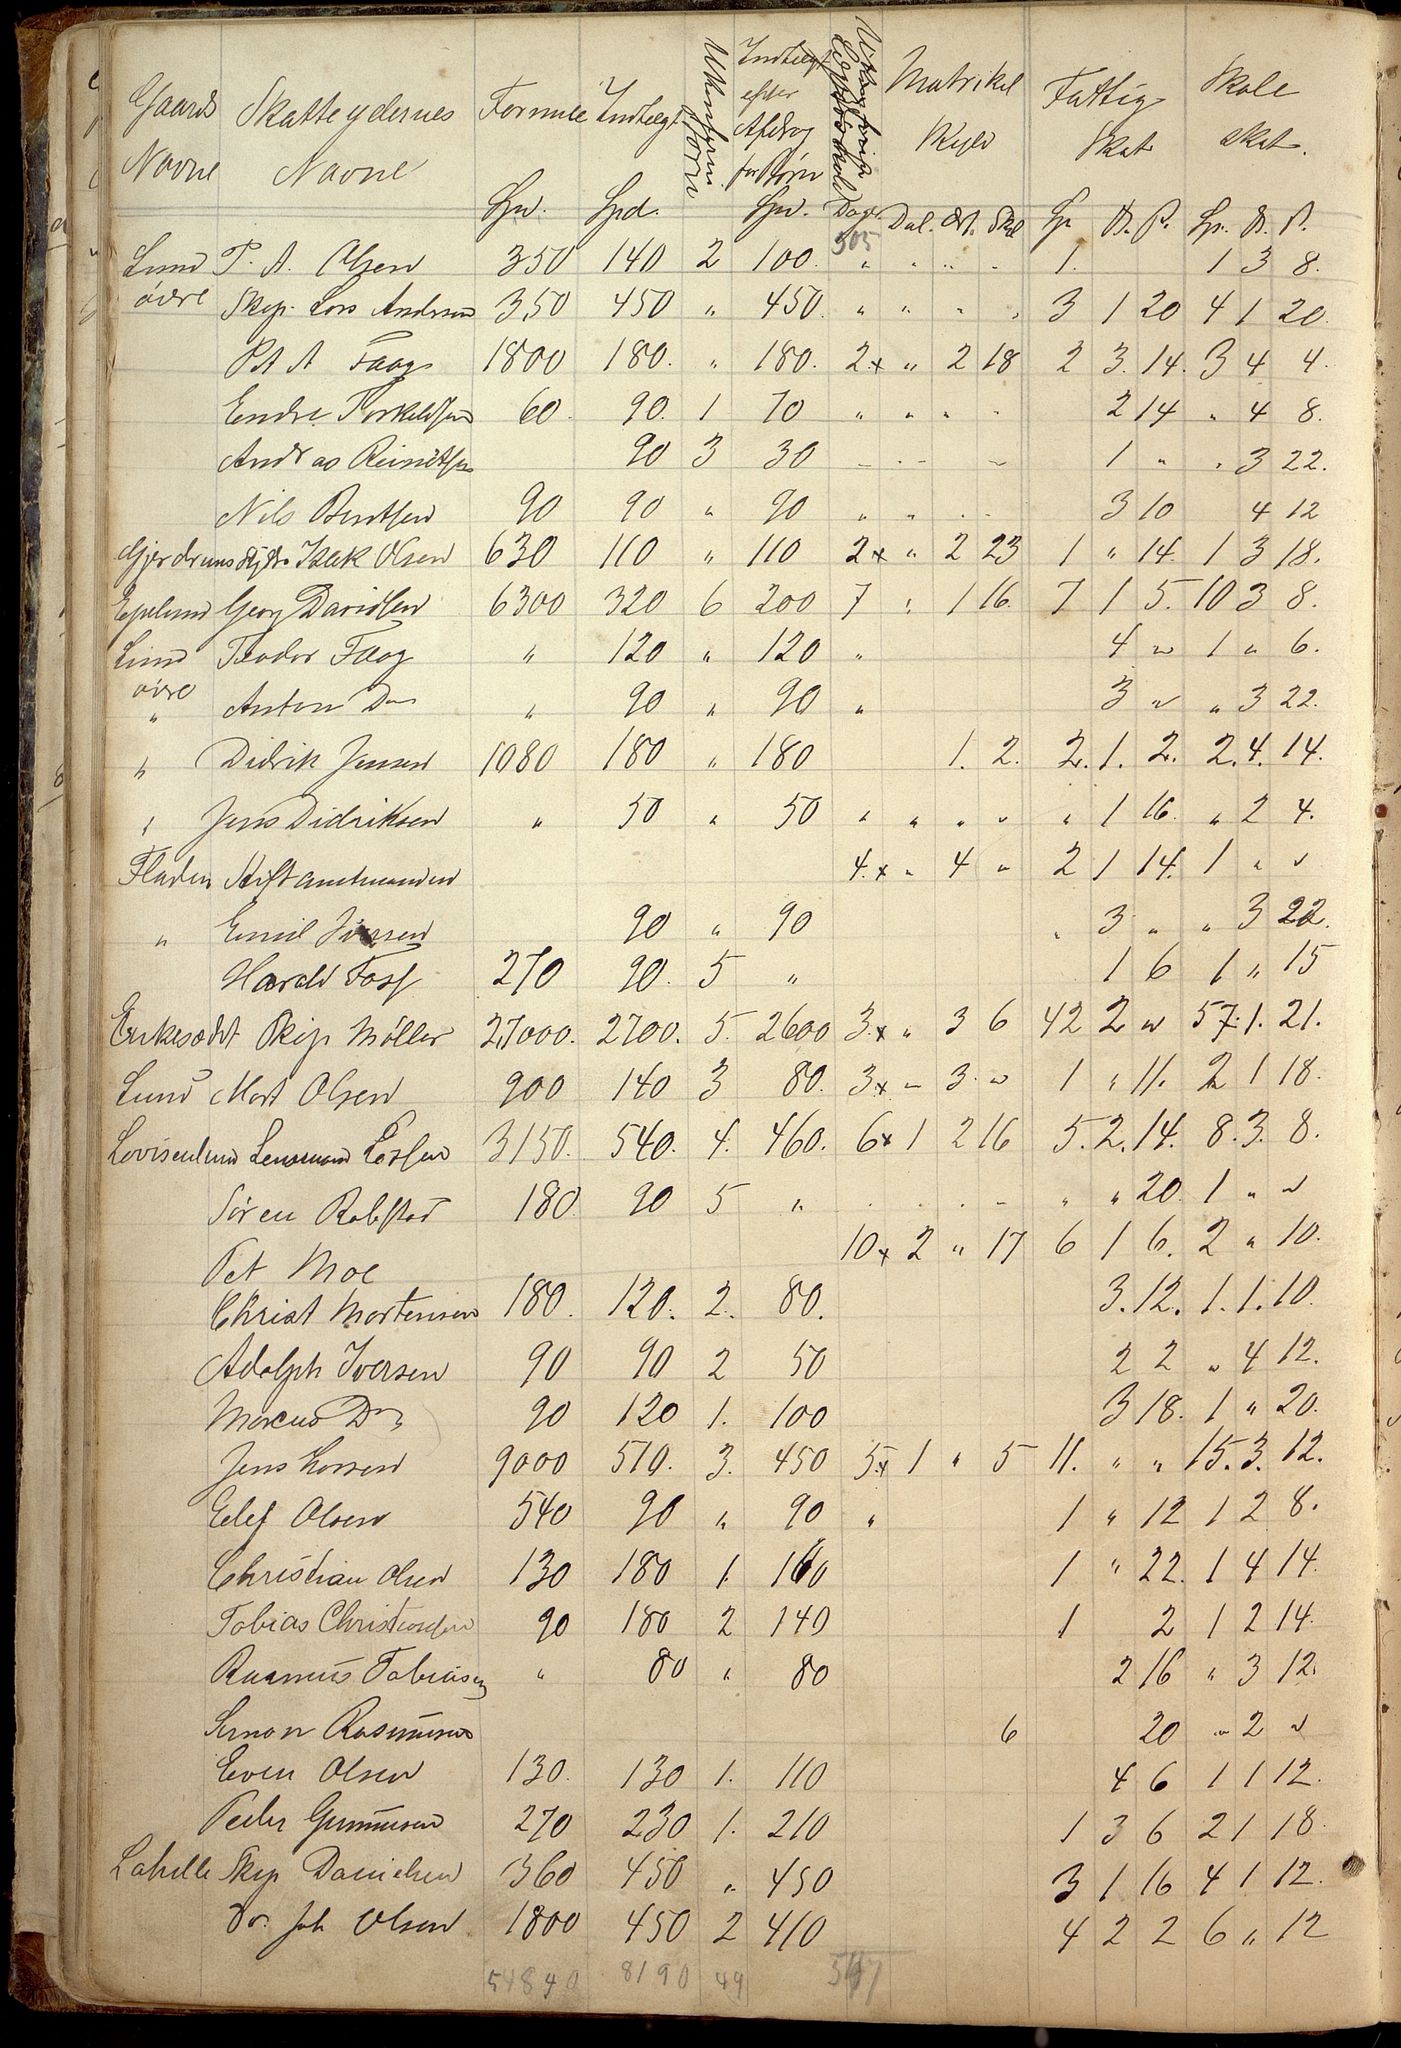 Gaards Navne Skatteydernes Navne Formue Indtægt Uforsørgede Børn Indtægt efter Afdrag for Børn Matrikel Skyld Fattig Skat Skole skat.
Spd. Spd. Spd. Dage Dal. Ort. Skil Sp. O. S. Sp. O. S.
505
Lund T. A. Olsen 350 140 2 100. " " " " 1. 1 3 8.
øvre Skip. Lars Andersen 350 450 " 450. " " " " 3 1 20 4 1 20.
P A A Faog 1800 180. " 180. 2x " 2 18 2 3. 14. 3 4 4.
Endre Torkeldsen 60. 90. 1 70 " " " " 2 14 " 4 8.
Andras Reinertsen 90 3 30 1 " " 3 22.
Nils Berntsen 90 90 " 90 " " " " 3 10 4 12
Gjerdrums Isak Olsen 630 110 " 110 2x " 2 23 1 " 14. 1 3 18.
Epelund Georg Davidsen 6300 320 6 200 7 " 1 16. 7 1 5. 10 3 8.
Lund Teodor Faog " 120 " 120 " 4 " 1 " 6.
øvre " Anton Do " 90 " 90 " 3 " " 3 22.
" Didrik Jensen 1080 180 " 180 1. 2. 2. 1. 2. 2. 4. 14.
" Jens Didriksen " 50 " 50 " " " " " 1 16. " 2 4.
Fladen Stiftamtmanden 4.x " 4 " 2 1 14. 1 " "
" Emil Iversen 90 " 90 " 3 " " 3 22.
Harald Foss 270 90. 5 " 1 6 1 " 15
Enkesædet Skip Møller 27000. 2700. 5. 2600 3.x " 3 6 42 2 " 57. 1. 21.
Lund Mort Olsen 900 140 3 80. 3x " 3. " 1 " 11. 2 1 18.
Lovisenlund Lensmand 3150. 540. 4. 460. 6x 1 2 16 5. 2. 14. 8. 3. 8.
Søren Robstad 180. 90 5 " " 20. 1 " "
Pet Moe 10x 2 " 17 6 1 6. 2 " 10.
Christ Mortensen 180. 120. 2. 80. 3. 12. 1. 1. 10.
Adolph Iversen 90 90 2 50 2 2 " 4 12.
Marcus Do 90 120 1. 100 3 18. 1 " 20.
Jens Larsen 9000 510. 3. 450 5x 1 " 5 11. " " 15. 3. 12.
Elef Olsen 540 90 " 90 " 1 " 12 1 2 8.
Christian Olsen 130 180 1. 160 1 " 22. 1 4 14.
Tobias Christiansen 90 180 2 140 1 2 1 2 14.
Rasmus Tobiasen " 80 " 80 2 16 " 3 12.
Simon Rasmussen 6 20 " 2 "
Even Olsen 130. 130 1. 110 4 6 1 1 12.
Peder Gunnusen 270 230 1. 210 1 3 6 2 1 18.
Lahelle Skip Danielsen 360 450 " 450 3 1 16 4 1 12.
Do. Joh Olsen 1800 450 2 410 4 2 2 6 " 12
54840 8190 49 547